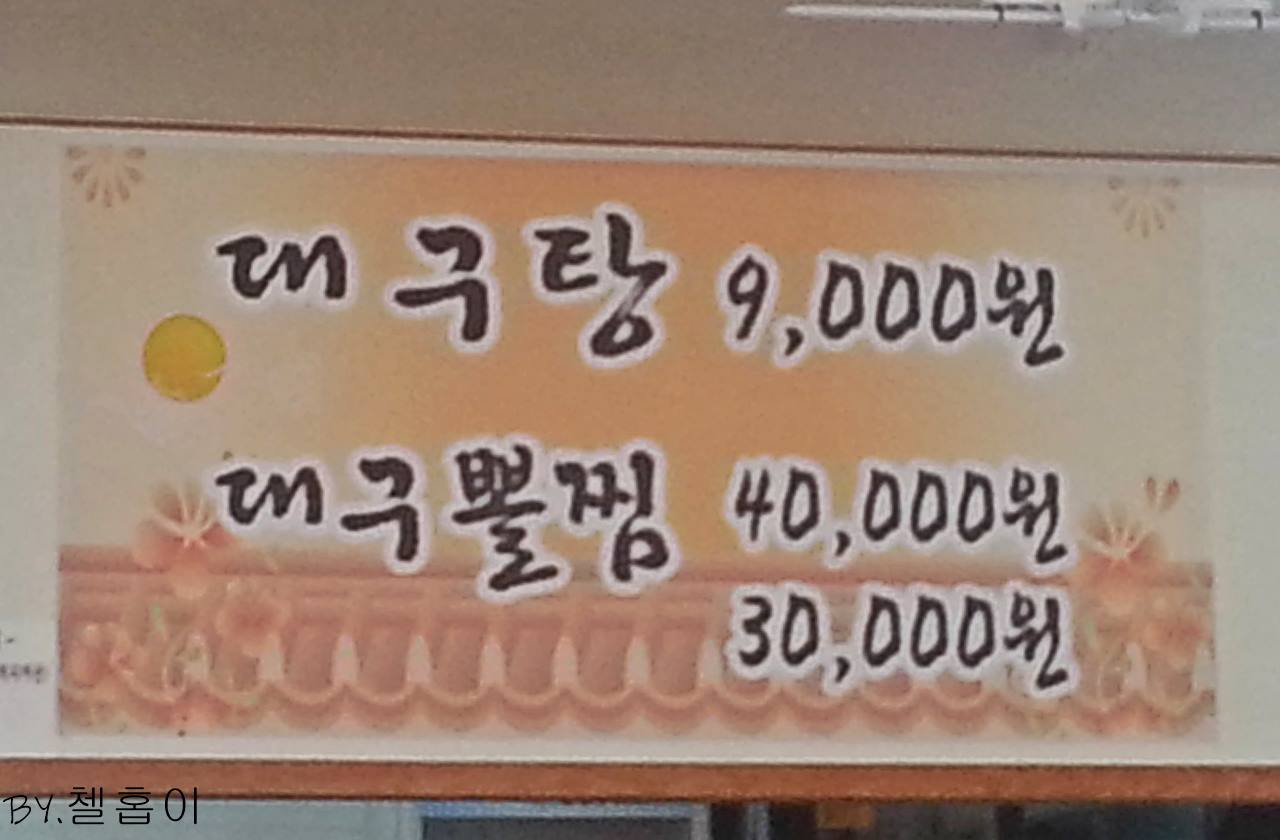 대구탕 9,000원
대구뽈찜 40,000원
30,000원
BY.첼홉이